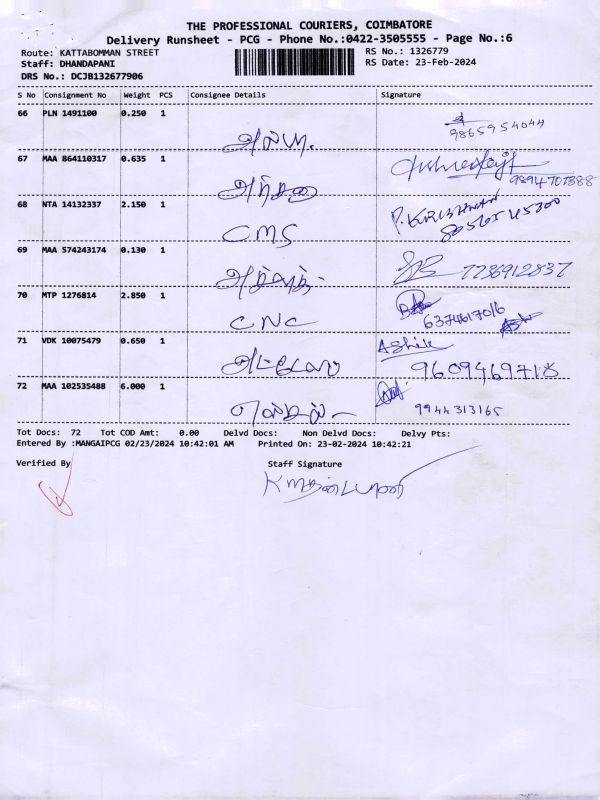 THE PROFESSIONAL COURIERS, COIMBATORE
Delivery Runsheet - PCG - Phone No.:0422-3505555 - Page No.:6
Route: KATTABOMMAN STREET RS No.: 1326779
Staff: DHANDAPANI RS Date: 23-Feb-2024
DRS No.: DCJB132677906
S No Consignment No Weight PCS Consignee Details Signature
66 PLN 1491100 0.250 1
9865954044
67 MAA 864110317 0.635 1
9894707388
68 NTA 14132337 2.150 1 P. KRISHNAN
CMS
69 MAA 574243174 0.130 1
7736912837
70 MTP 1276814 2.850 1
CNC 6374617016
71 VDK 10075479 0.650 1 AShik
9609469718
72 MAA 102535488 6.000 1
9944313165
Tot Docs: 72 Tot COD Amt: 0.00 Delvd Docs: Non Delvd Docs: Delvy Pts:
Entered By :MANGAIPCG 02/23/2024 10:42:01 AM Printed On: 23-02-2024 10:42:21
Verified By Staff Signature